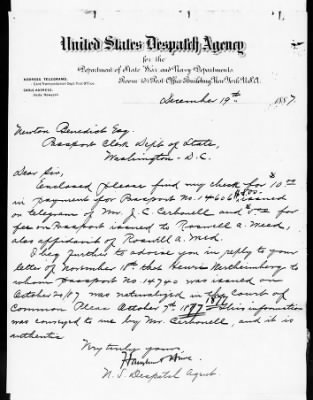 United States Despatch Agency
for the
Department of State War and Navy Departments
Room 131 Post Office Building, New York, U.S.A.
ADDRESS TELEGRAMS:
CABLE ADDRESS:
December 19th, 1887.
Newton Benedict Esq.
Passport Clerk Dept of State,
Washington - D.C.
Dear Sir,
Enclosed please find my check for $10.00
in payment for Passport No. 14606 issued
on telegram of Mr. J. C. Carbonell and for
fee on Passport issued to Roswell A. Mead,
also affidavit of Roswell A. Mead.
I beg further to advise you in reply to your
letter of November 18th that Henri
whom Passport No. 14740 was issued on
October 20/87 was naturalized in the Court of
Common Pleas October 7th, 1887 This information
was conveyed to me by Mr. Carbonell, and it is
authentic
Very truly yours,
U.S Despatch Agent.